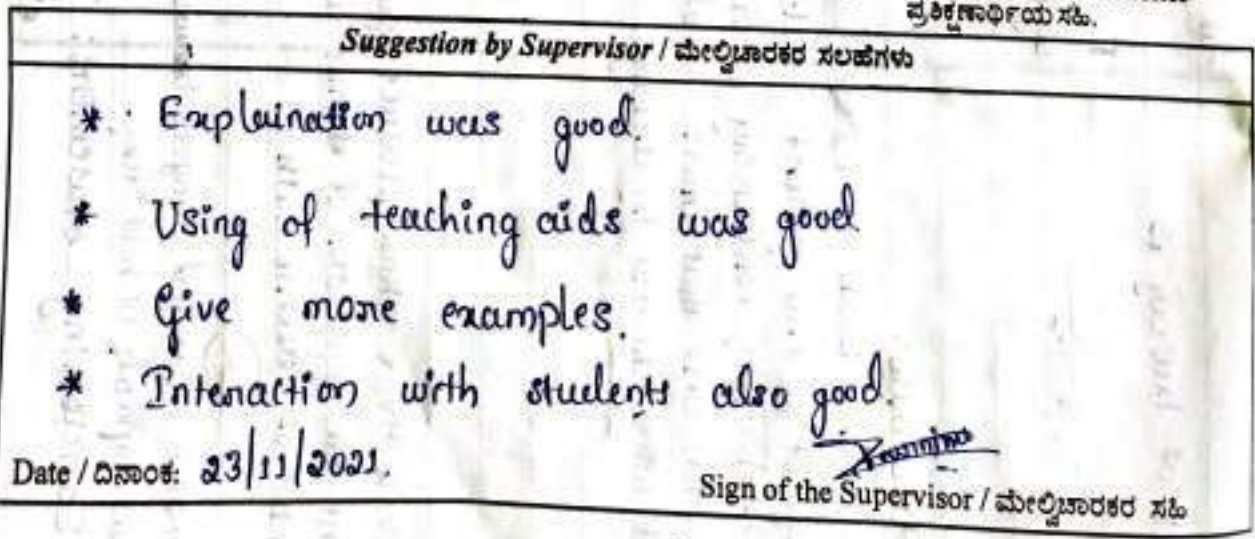 ಪ್ರಶಿಕ್ಷಣಾರ್ಥಿಯ ಸಹಿ.
Suggestion by Supervisor / ಮೇಲ್ವಿಚಾರಕರ ಸಲಹೆಗಳು
* Explaination was good.
* Using of teaching aids was good
* Give more examples.
* Interaction with students also good.
Date / ದಿನಾಂಕ: 23/11/2021.
Sign of the Supervisor / ಮೇಲ್ವಿಚಾರಕರ ಸಹಿ